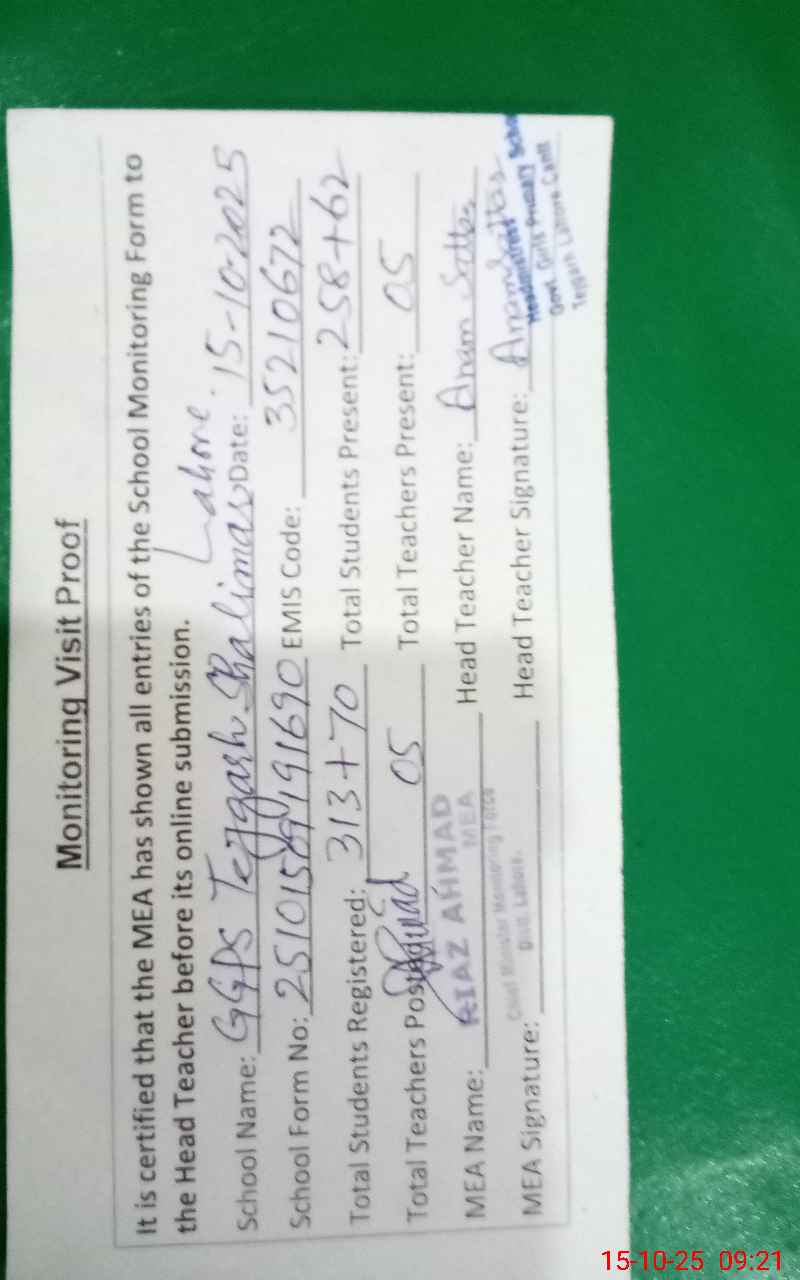 Monitoring Visit Proof
It is certified that the MEA has shown all entries of the School Monitoring Form to
the Head Teacher before its online submission.
Lahore.
School Name: GGPS Tejgarh Shalimar Date: 15-10-2025
School Form No: 25101509191690 EMIS Code: 35210672
Total Students Registered: 313+70 Total Students Present: 258+62
Total Teachers Posted: 05 Total Teachers Present: 05
MEA Name: RIAZ AHMAD Head Teacher Name: Anam Sattar
MEA
Chief Minister Monitoring Force
Distt. Lahore.
MEA Signature: Head Teacher Signature: Anam Sattar
Headmistress
Govt. Girls Primary School
Tejgarh Lahore Cantt
15-10-25 09:21